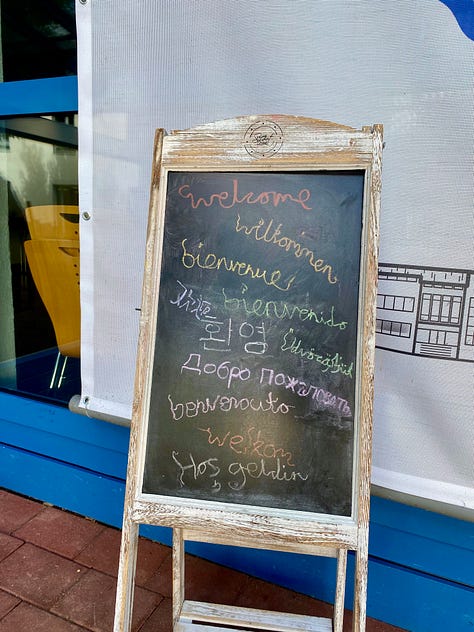 welcome
willkommen
bienvenue!
bienvenido
환영
Üdvözöljük
Добро пожаловать
benvenuto
welkom
Hoş geldin